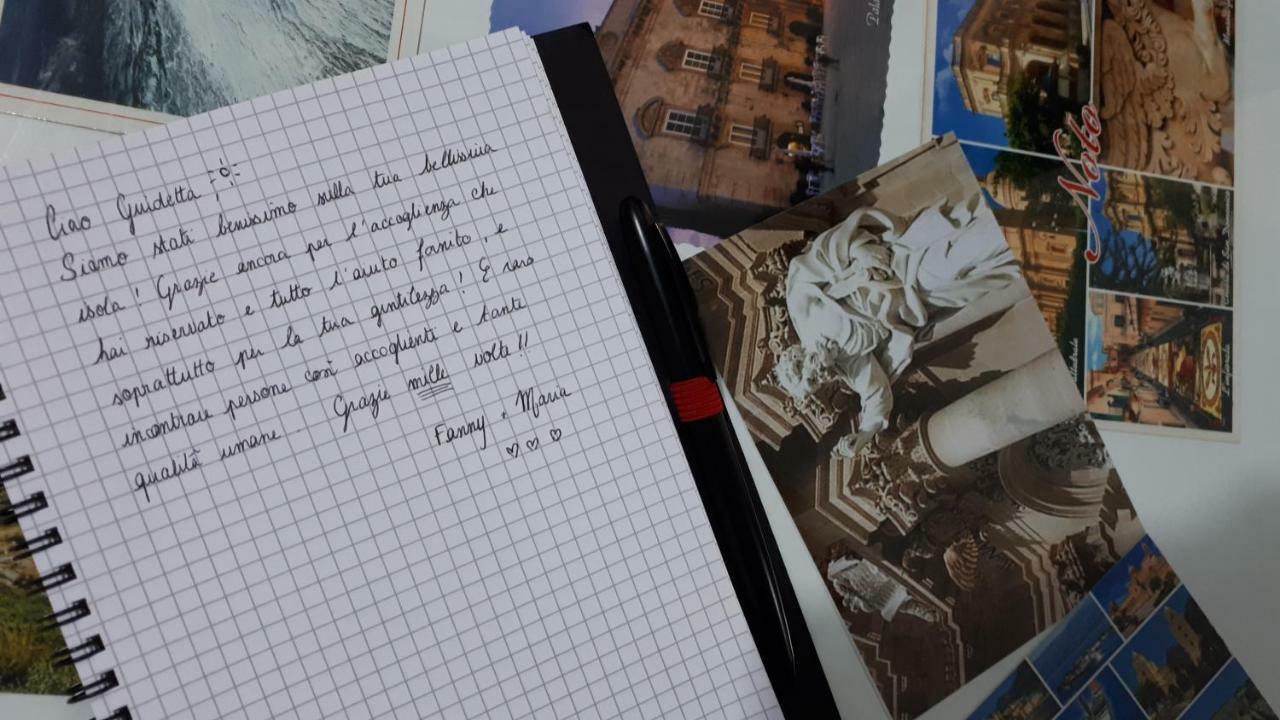 Ciao Guidetta,
Siamo stati benissimo sulla tua bellissima
isola! Grazie ancora per l'accoglienza che
hai riservato e tutto l'aiuto fornito, e
soprattutto per la tua gentilezza! È raro
incontrare persone così accoglienti e tante
qualità umane. Grazie mille volte!!
Fanny + Maria
Noto